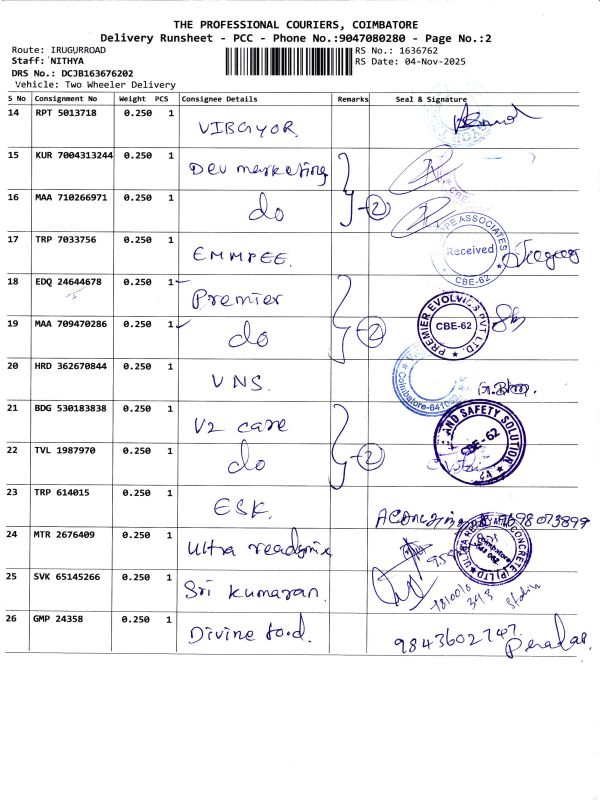 THE PROFESSIONAL COURIERS, COIMBATORE
Delivery Runsheet - PCC - Phone No.:9047080280 - Page No.:2
Route: IRUGURROAD
Staff: NITHYA
DRS No.: DCJB163676202
Vehicle: Two Wheeler Delivery
RS No.: 1636762
RS Date: 04-Nov-2025
S No Consignment No Weight PCS Consignee Details Remarks Seal & Signature
14 RPT 5013718 0.250 1 VIBGYOR
15 KUR 7004313244 0.250 1 Dev marketing
16 MAA 710266971 0.250 1 do 2
17 TRP 7033756 0.250 1 EMMPEE. ASSOCIATES Received CBE-62
18 EDQ 24644678 0.250 1 Premier
19 MAA 709470286 0.250 1 do 2 PREMIER EVOLVICS PVT LTD. CBE-62
20 HRD 362670844 0.250 1 VNS. Coimbatore-641062
21 BDG 530183838 0.250 1 V2 care
22 TVL 1987970 0.250 1 do 2 AND SAFETY SOLUTION CBE-62
23 TRP 614015 0.250 1 ESK.
24 MTR 2676409 0.250 1 Ultra readymix CONCRETE (P) LTD
25 SVK 65145266 0.250 1 Sri kumaran.
26 GMP 24358 0.250 1 Divine food. 9843602747.